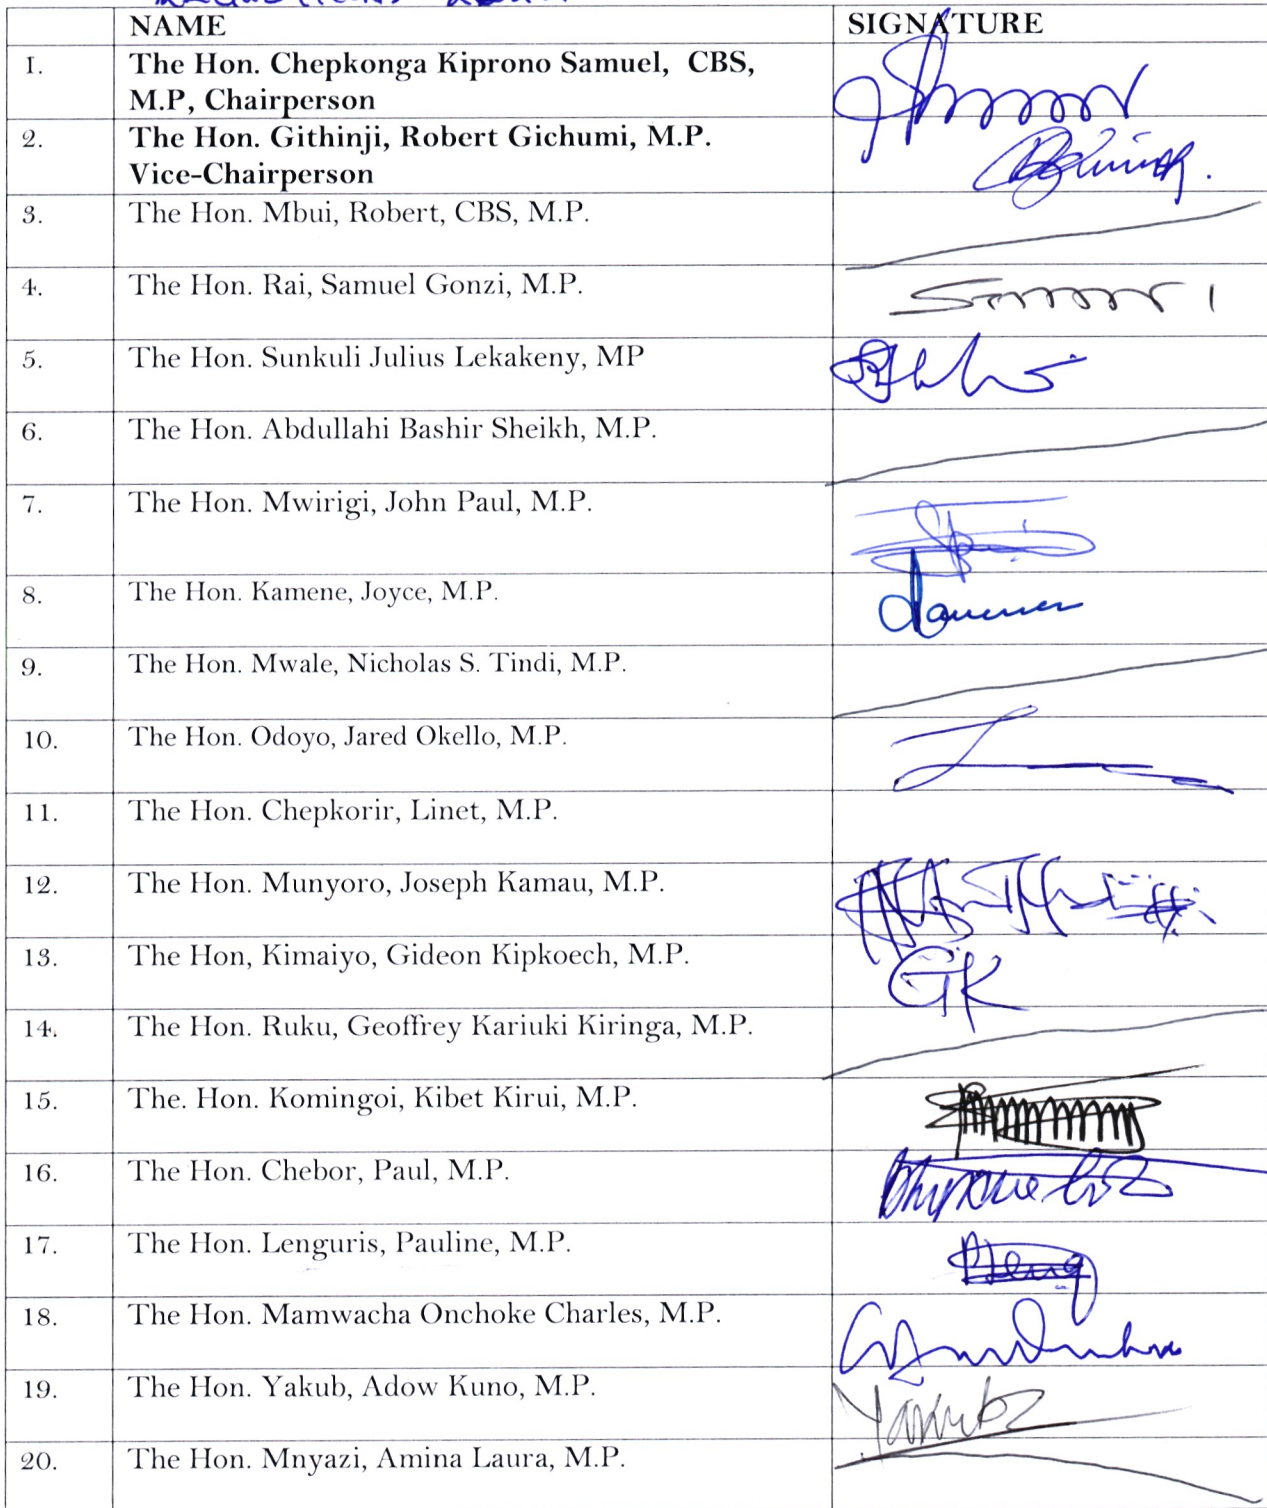 NAME SIGNATURE
1. The Hon. Chepkonga Kiprono Samuel, CBS,
M.P, Chairperson
2. The Hon. Githinji, Robert Gichumi, M.P.
Vice-Chairperson
3. The Hon. Mbui, Robert, CBS, M.P.
4. The Hon. Rai, Samuel Gonzi, M.P.
5. The Hon. Sunkuli Julius Lekakeny, MP
6. The Hon. Abdullahi Bashir Sheikh, M.P.
7. The Hon. Mwirigi, John Paul, M.P.
8. The Hon. Kamene, Joyce, M.P.
9. The Hon. Mwale, Nicholas S. Tindi, M.P.
10. The Hon. Odoyo, Jared Okello, M.P.
11. The Hon. Chepkorir, Linet, M.P.
12. The Hon. Munyoro, Joseph Kamau, M.P.
13. The Hon, Kimaiyo, Gideon Kipkoech, M.P. GK
14. The Hon. Ruku, Geoffrey Kariuki Kiringa, M.P.
15. The. Hon. Komingoi, Kibet Kirui, M.P.
16. The Hon. Chebor, Paul, M.P.
17. The Hon. Lenguris, Pauline, M.P.
18. The Hon. Mamwacha Onchoke Charles, M.P.
19. The Hon. Yakub, Adow Kuno, M.P.
20. The Hon. Mnyazi, Amina Laura, M.P.